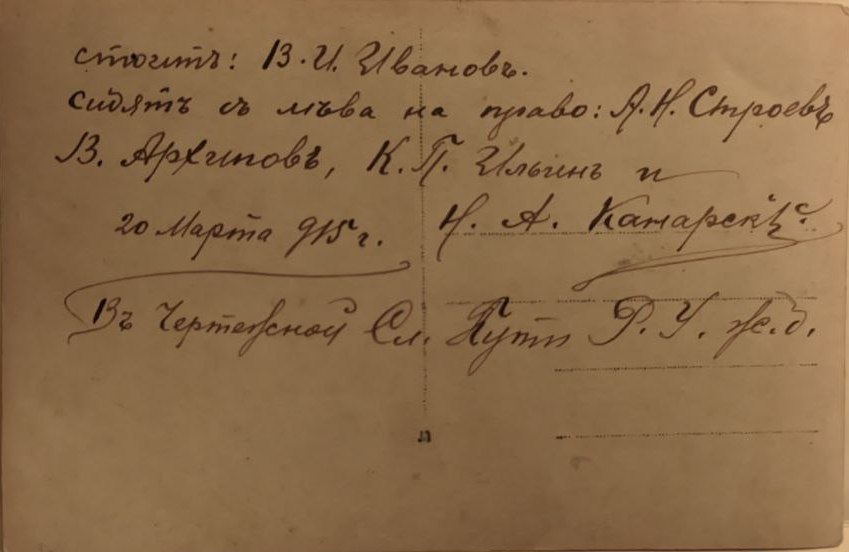 стоитъ: В. И. Ивановъ.
сидятъ съ лѣва на право: А. Н. Строевъ
В. Архиповъ, К. П. Ильинъ и
20 Марта 915 г. Н. А. Канарскій.
Въ Чертежной Сл. Пути Р. У. ж. д.